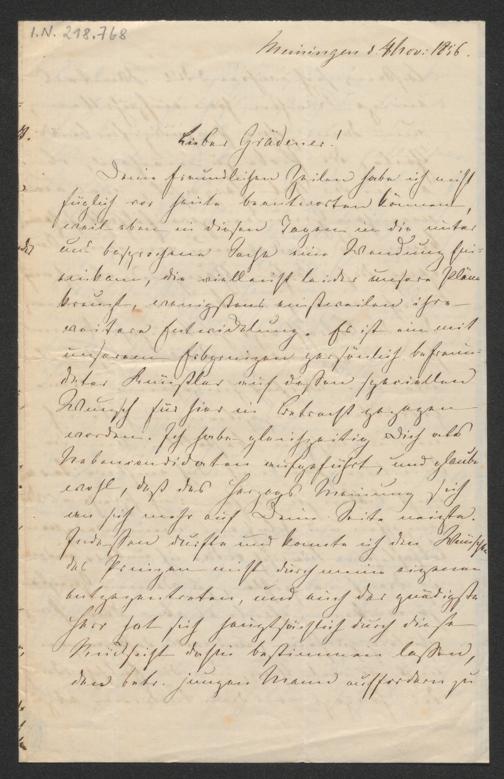 I.N. 218.768
Meiningen d 4 Nov: 1856.
Lieber Grädener!
Deine freundlichen Zeilen habe ich nicht
füglich vor heute beantworten können,
weil eben in diesen Tagen in die unter
uns besprochene Sache eine Wendung
kam, die vielleicht leider unsere Pläne
kreuzt, wenigstens einstweilen ihre
weitere Entwicklung. Es ist ein mit
unserem Erbprinzen persönlich befreun-
deter Künstler auf dessen speciellen
Wunsch für hier in Betracht gezogen
worden. Ich habe gleichzeitig Dich als
Nebencandidaten aufgeführt, und glaube
wohl, daß des Herzogs Meinung sich
an sich mehr auf Deine Seite neigte.
Indessen durfte und konnte ich den Wunsch
des Prinzen nicht durch meine eigenen
entgegentreten, und auch der gnädigste
Herr hat sich hauptsächlich durch diese
Rücksicht dahin bestimmen lassen,
den betr. jungen Mann auffordern zu